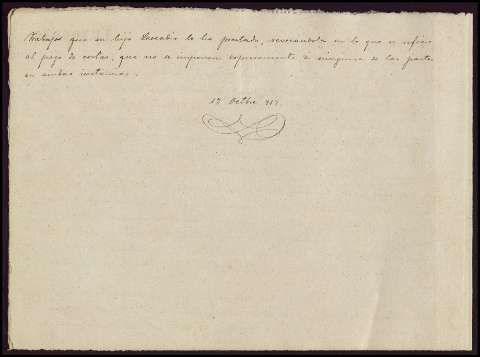 trabajos que su hijo Eusebio le ha prestado, revocandola en lo que se refiere
al pago de costas, que no se imponen expresamente a ninguna de las partes
en ambas instancias.
17 Octbre 917.